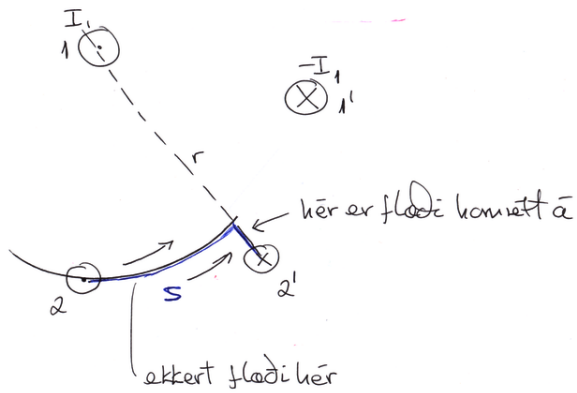 I₁
1
-I₁
1'
r
hér er flæði hornrétt á
2
S
2'
ekkert flæði hér